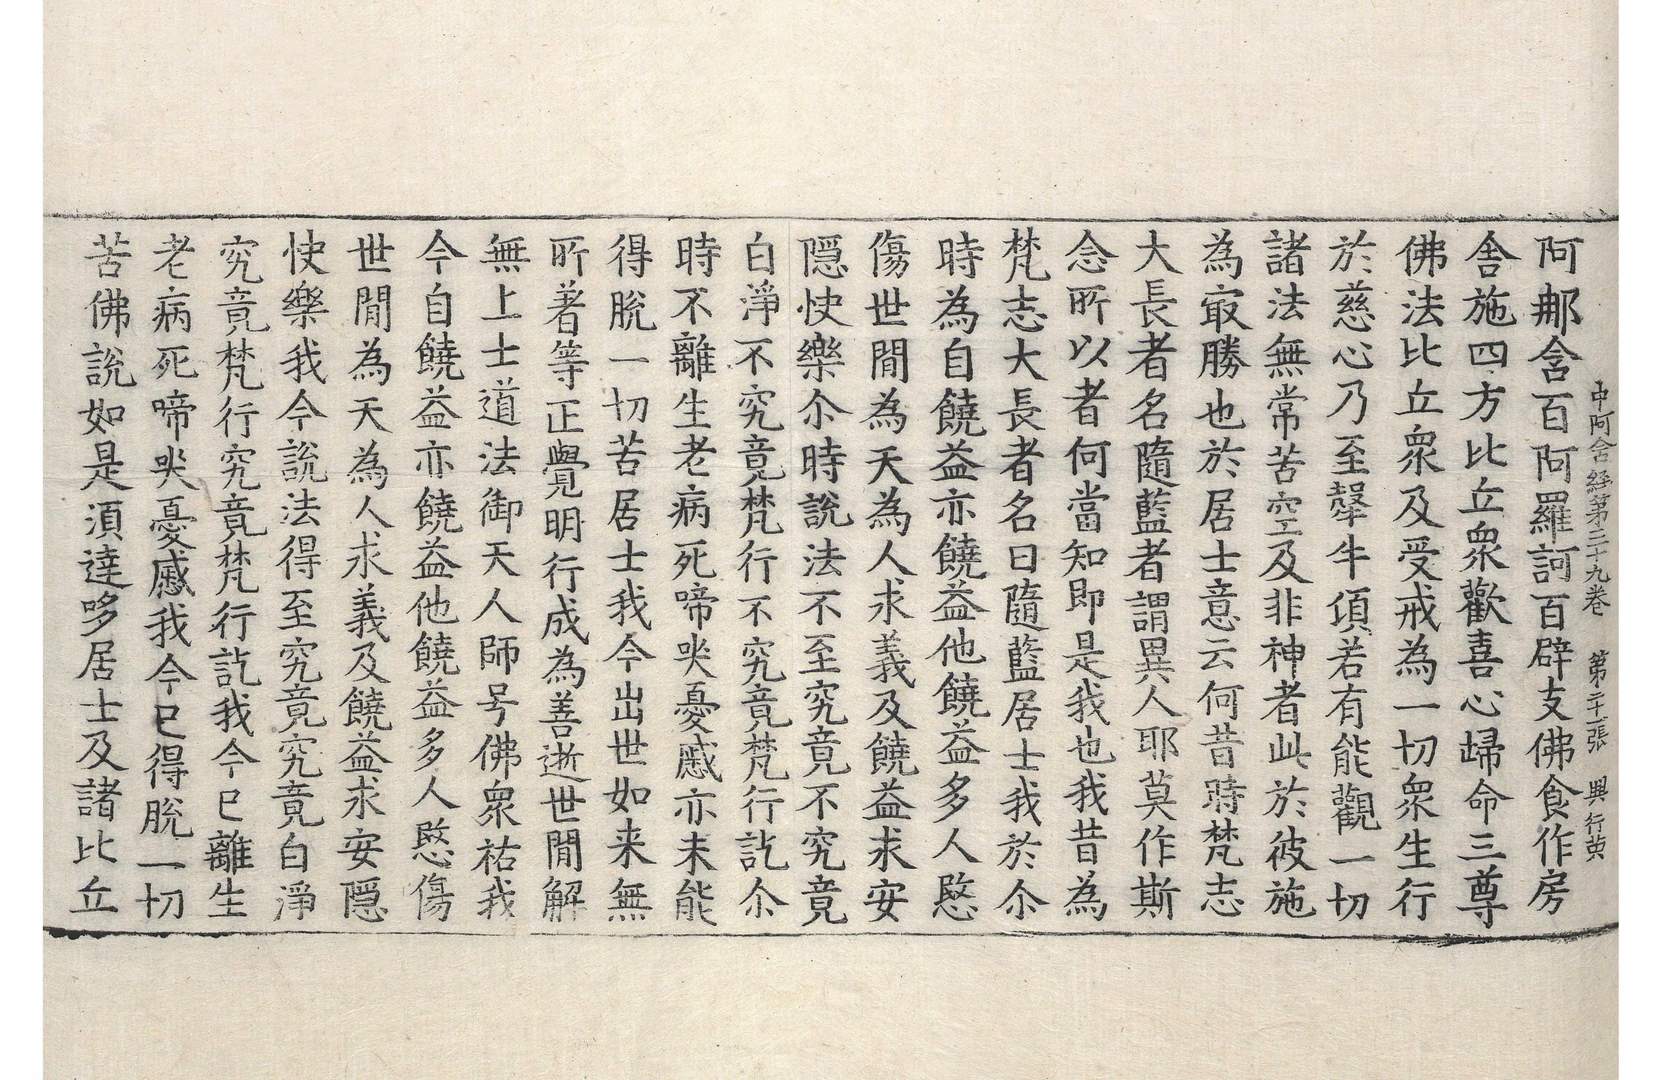 中阿含経第三十九卷　第二十一張　興　行黃
阿那含百阿羅訶百辟支佛食作房
舍施四方比丘衆歡喜心歸命三尊
佛法比丘衆及受戒為一切衆生行
於慈心乃至𤚲牛頃若有能觀一切
諸法無常苦空及非神者此於彼施
為㝡勝也於居士意云何昔時梵志
大長者名隨藍者謂異人耶莫作斯
念所以者何當知即是我也我昔為
梵志大長者名曰隨藍居士我於尒
時為自饒益亦饒益他饒益多人愍
傷世閒為天為人求義及饒益求安
隱快樂尒時說法不至究竟不究竟
白淨不究竟梵行不究竟梵行訖尒
時不離生老病死啼哭憂慼亦未能
得脫一切苦居士我今出世如来無
所著等正覺明行成為善逝世閒解
無上士道法御天人師号佛衆祐我
今自饒益亦饒益他饒益多人愍傷
世閒為天為人求義及饒益求安隱
快樂我今說法得至究竟究竟白淨
究竟梵行究竟梵行訖我今已離生
老病死啼哭憂慼我今已得脫一切
苦佛說如是須達哆居士及諸比丘